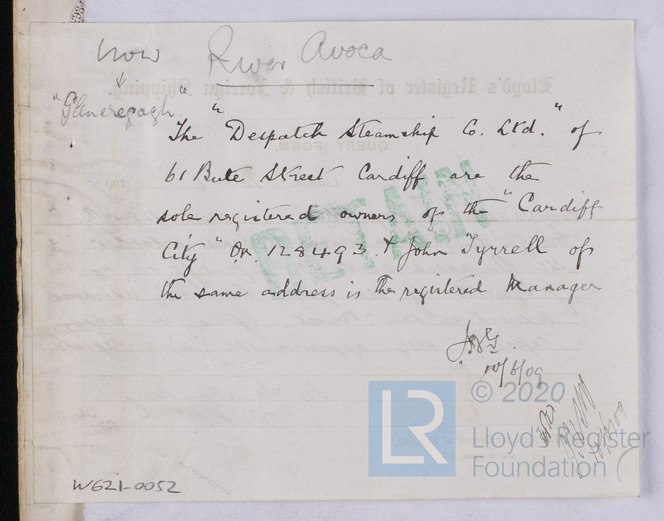 now River Avoca
"Gleneregagh"
The "Despatch Steamship Co. Ltd." of
61 Bute Street Cardiff are the
sole registered owners of the "Cardiff
City" O.N. 128493. & John Tyrrell of
the same address is the registered Manager
10/6/09
© 2020
LR
Lloyd's Register
Foundation
W621-0052
RETAIN
Lloyd's Register of British & Foreign Shipping.
QUERY FORM.